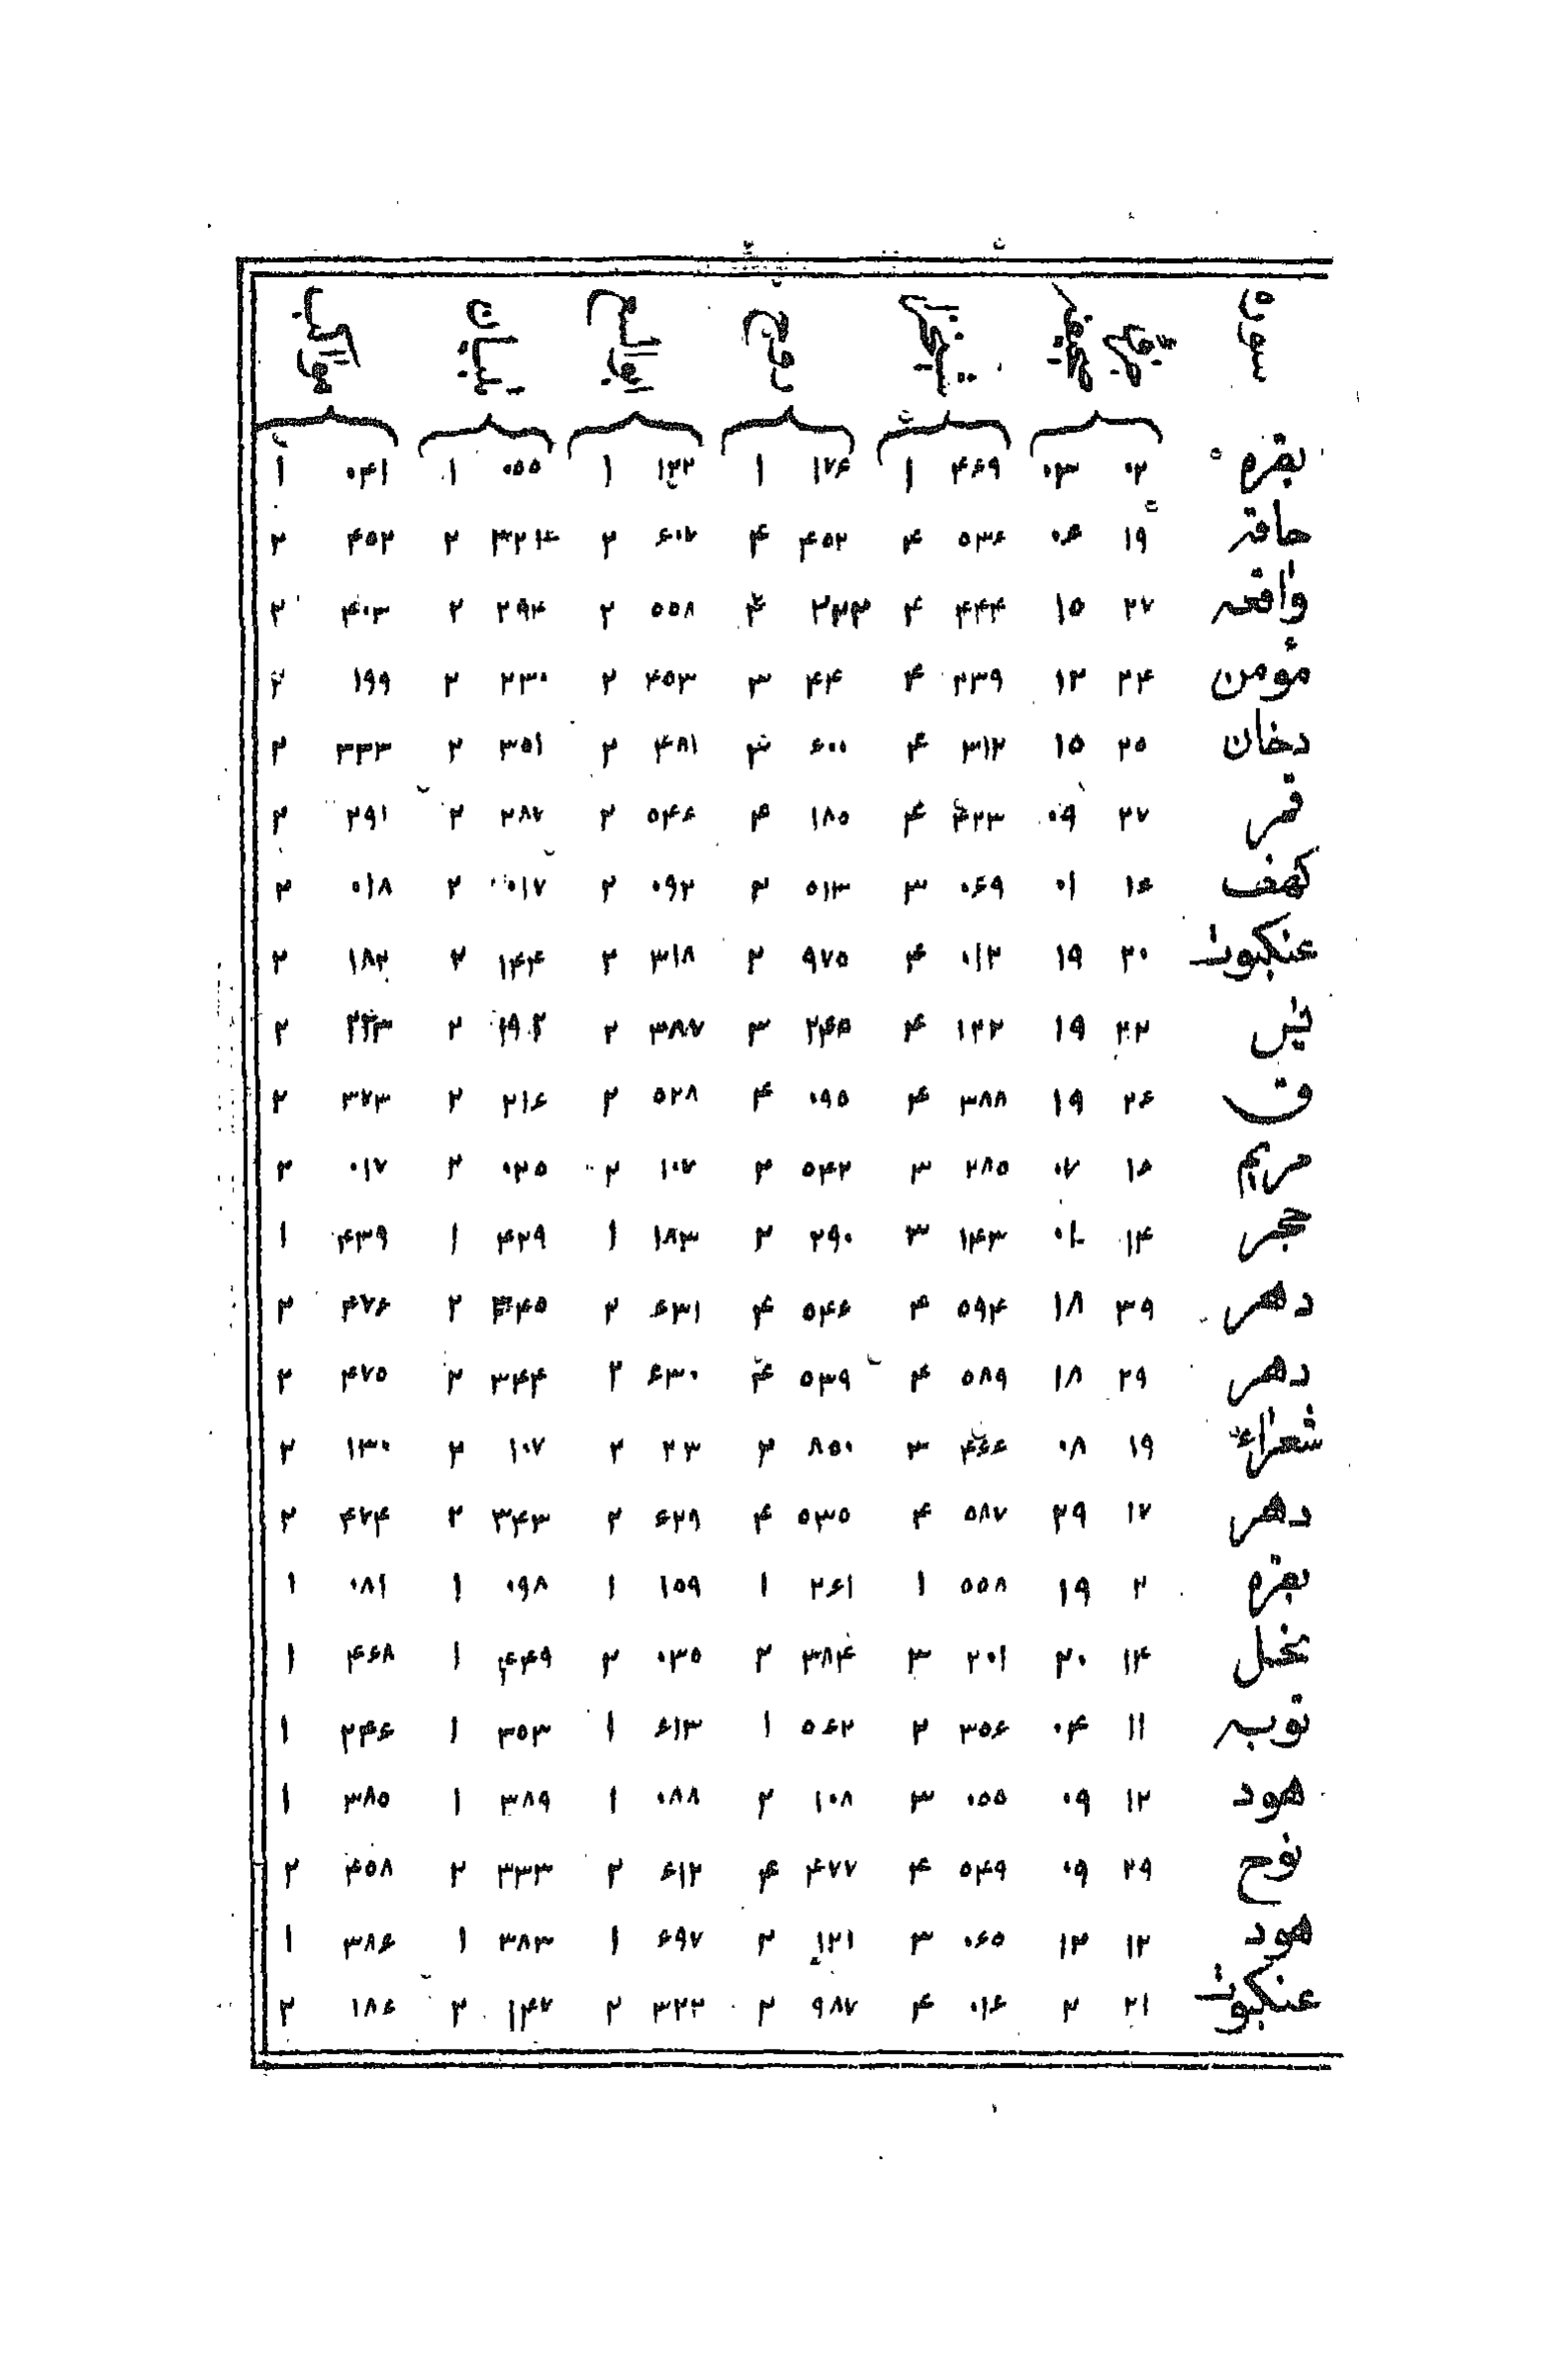 سورة
بقره ۰۲ ۰۳ ۴۶۹ ۱ ۱۷۶ ۱ ۱۲۲ ۱ ۰۵۵ ۱ ۰۴۱ ۱
حاقه ۱۹ ۰۶ ۵۳۶ ۴ ۴۵۲ ۴ ۶۰۷ ۲ ۲ ۴۵۲ ۲
واقعه ۲۷ ۱۵ ۴۴۴ ۴ ۴ ۵۵۸ ۲ ۲۹۴ ۲ ۴۰۳ ۲
مؤمن ۲۴ ۱۲ ۲۳۹ ۴ ۴۴ ۳ ۴۵۳ ۲ ۲۳۰ ۲ ۱۹۹ ۲
دخان ۲۵ ۱۵ ۳۱۲ ۴ ۶۰۰ ۳ ۴۸۱ ۲ ۳۵۱ ۲ ۳۳۳ ۲
قمر ۲۷ ۰۹ ۴۲۳ ۴ ۱۸۵ ۴ ۵۴۶ ۲ ۲۸۷ ۲ ۲۹۱ ۲
کهف ۱۶ ۰۱ ۰۶۹ ۳ ۵۱۳ ۲ ۰۹۲ ۲ ۰۱۷ ۲ ۰۱۸ ۲
عنکبوت ۲۰ ۱۹ ۰۱۲ ۴ ۹۷۵ ۲ ۳۱۸ ۲ ۱۴۴ ۲ ۱۸۲ ۲
یٰس ۲۲ ۱۹ ۱۲۲ ۴ ۲۴۵ ۳ ۳۸۷ ۲ ۱۹۲ ۲ ۲۲۳ ۲
ق ۲۶ ۱۹ ۳۸۸ ۴ ۰۹۵ ۴ ۵۲۸ ۲ ۲۱۶ ۲ ۳۷۳ ۲
مریم ۱۶ ۰۷ ۲۸۵ ۳ ۵۴۲ ۲ ۱۰۷ ۲ ۰۲۵ ۲ ۰۱۷ ۲
حجر ۱۴ ۰۱ ۱۴۳ ۳ ۲۹۰ ۲ ۱۸۳ ۱ ۴۲۹ ۱ ۴۳۹ ۱
دهر ۳۹ ۱۸ ۵۹۴ ۴ ۵۴۶ ۴ ۶۳۱ ۲ ۳۴۵ ۲ ۴۷۶ ۲
دهر ۲۹ ۱۸ ۵۸۹ ۴ ۵۳۹ ۴ ۶۳۰ ۲ ۳۴۴ ۲ ۴۷۵ ۲
شعراء ۱۹ ۰۸ ۴۶۶ ۳ ۸۵۰ ۲ ۲۳ ۲ ۱۰۷ ۲ ۱۳۰ ۲
دهر ۱۷ ۲۹ ۵۸۷ ۴ ۵۳۵ ۴ ۶۲۹ ۲ ۳۴۳ ۲ ۴۷۴ ۲
بقره ۲ ۱۹ ۵۵۸ ۱ ۲۶۱ ۱ ۱۵۹ ۱ ۰۹۸ ۱ ۰۸۱ ۱
نحل ۱۴ ۲۰ ۲۰۱ ۳ ۳۸۴ ۲ ۰۳۵ ۲ ۴۴۹ ۱ ۴۶۸ ۱
توبه ۱۱ ۰۴ ۳۵۶ ۲ ۵۶۲ ۱ ۶۱۳ ۱ ۳۵۳ ۱ ۲۴۶ ۱
هود ۱۲ ۰۹ ۰۵۵ ۳ ۱۰۸ ۲ ۰۸۸ ۱ ۳۸۹ ۱ ۳۸۵ ۱
نوح ۲۹ ۰۹ ۵۴۹ ۴ ۴۷۷ ۴ ۶۱۲ ۲ ۳۳۳ ۲ ۴۵۸ ۲
هود ۱۲ ۱۲ ۰۶۵ ۳ ۱۲۱ ۲ ۶۹۷ ۱ ۳۸۳ ۱ ۳۸۶ ۱
عنکبوت ۲۱ ۲ ۰۱۶ ۴ ۹۸۷ ۲ ۳۲۲ ۲ ۱۴۷ ۲ ۱۸۶ ۲